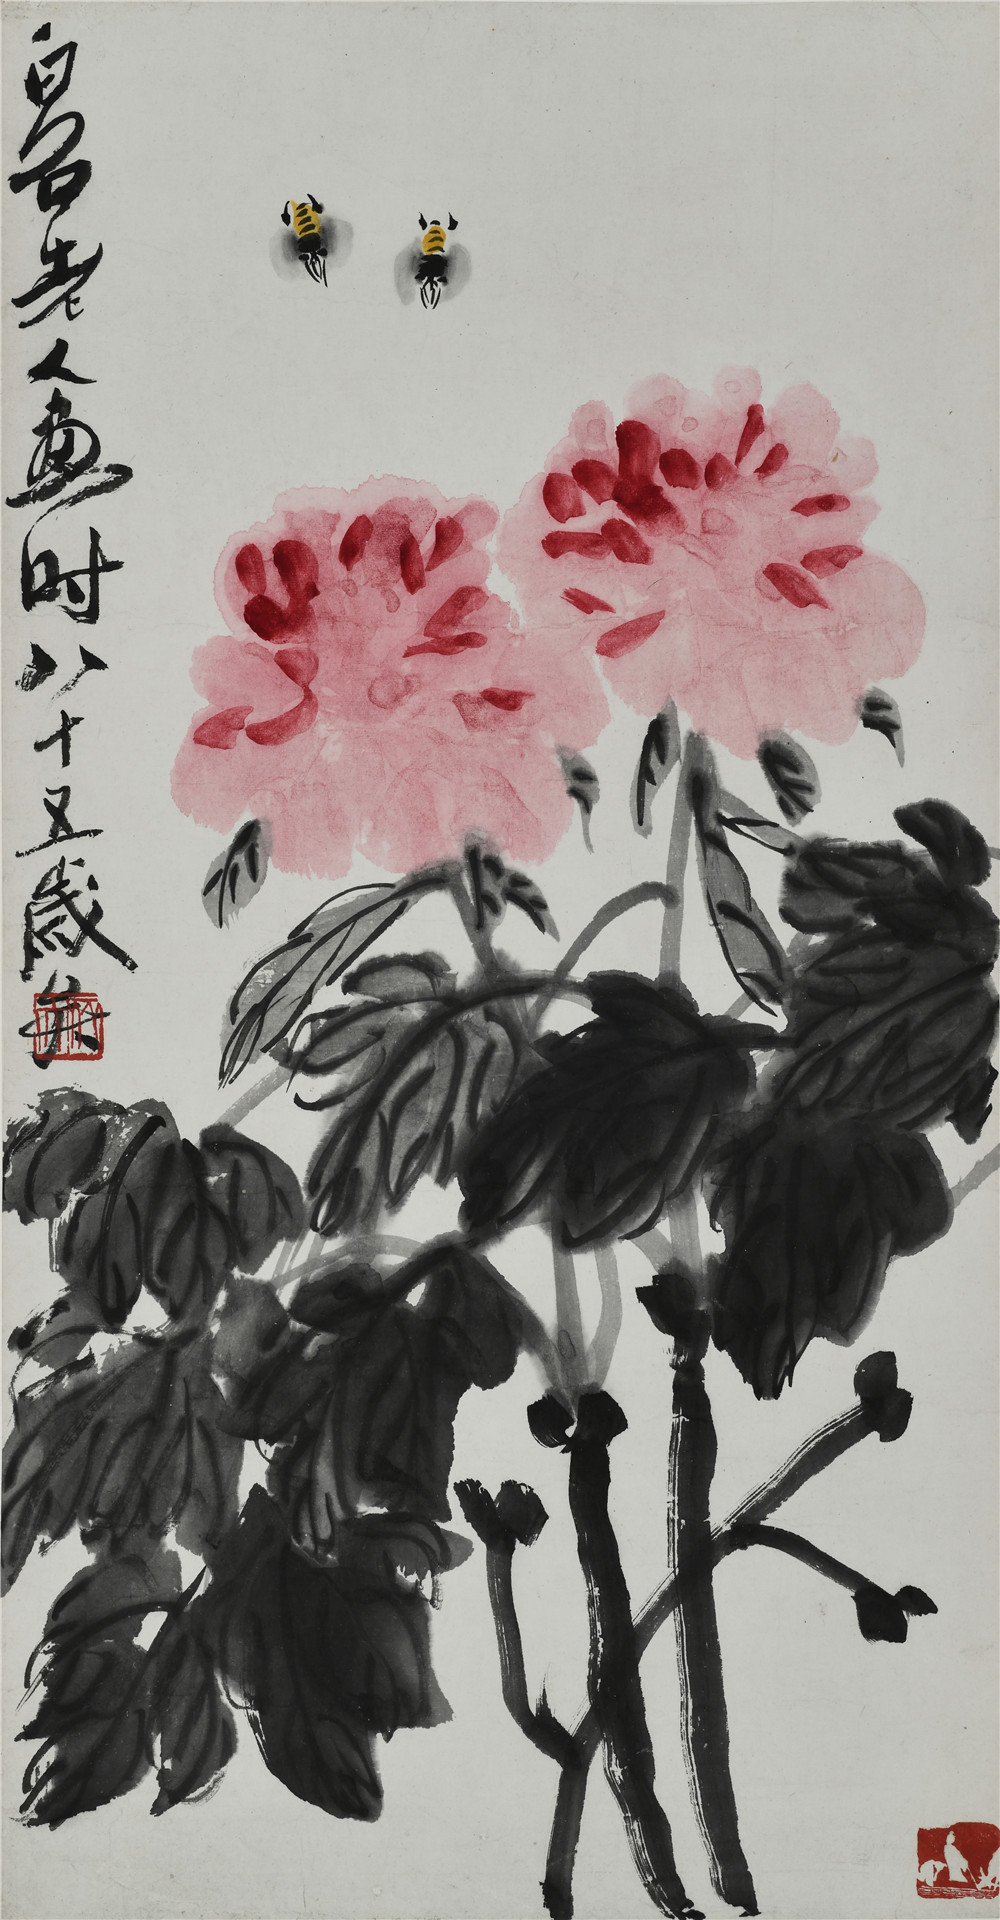 白石老人画时八十五岁矣